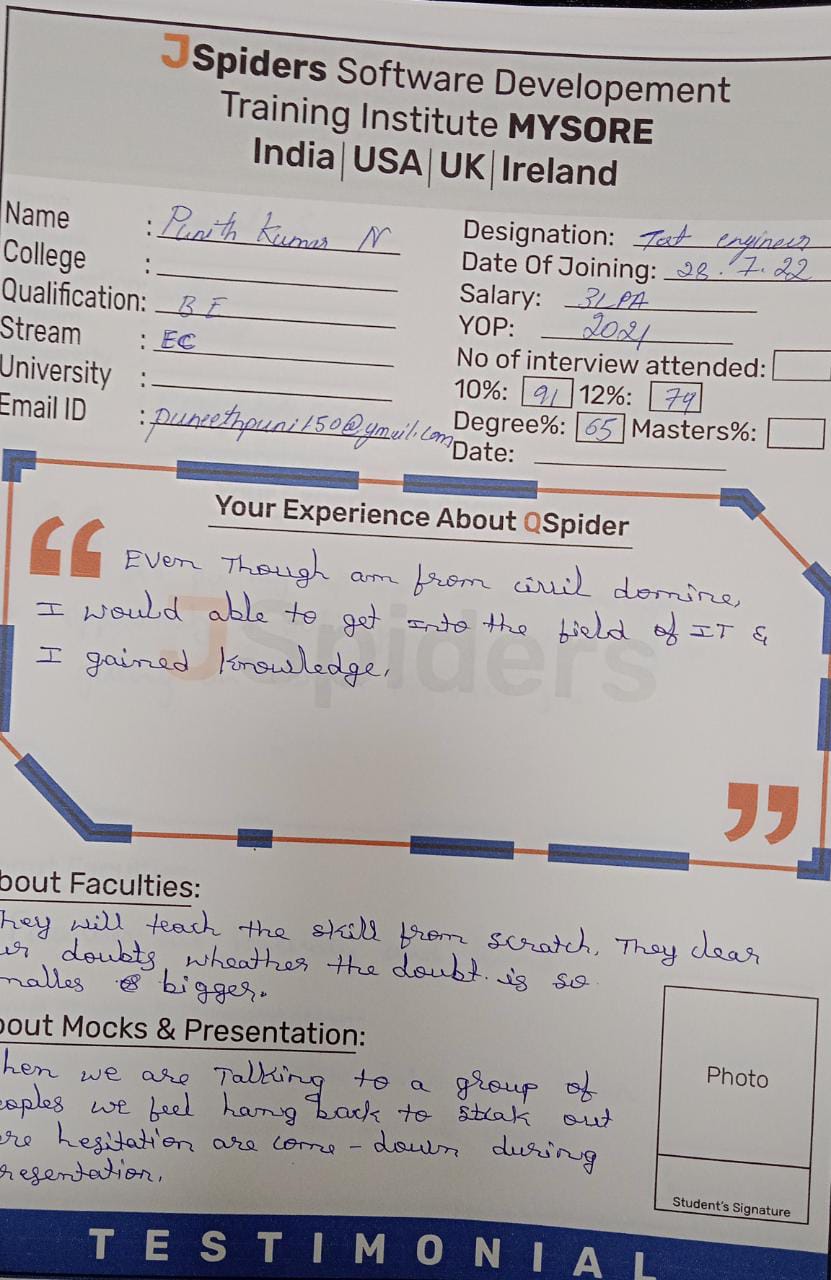 JSpiders Software Developement
Training Institute MYSORE
India | USA | UK | Ireland
Name : Punith Kumar N
College :
Qualification: BE
Stream : EC
University :
Email ID : puneethpuni150@gmail.com
Designation: Test engineer
Date Of Joining: 28.7.22
Salary: 3LPA
YOP: 2021
No of interview attended:
10%: 91 12%: 79
Degree%: 65 Masters%:
Date:
Your Experience About QSpider
“
Even Though am from civil domine,
I would able to get into the field of IT &
I gained knowledge,
JSpiders
”
bout Faculties:
hey will teach the skill from scratch, They clear
ur doubts wheather the doubt is so
malles or bigger.
bout Mocks & Presentation:
hen we are Talking to a group of
eoples we feel hang back to out
ere hesitation are come-down during
resentation,
Photo
Student's Signature
TESTIMONIAL